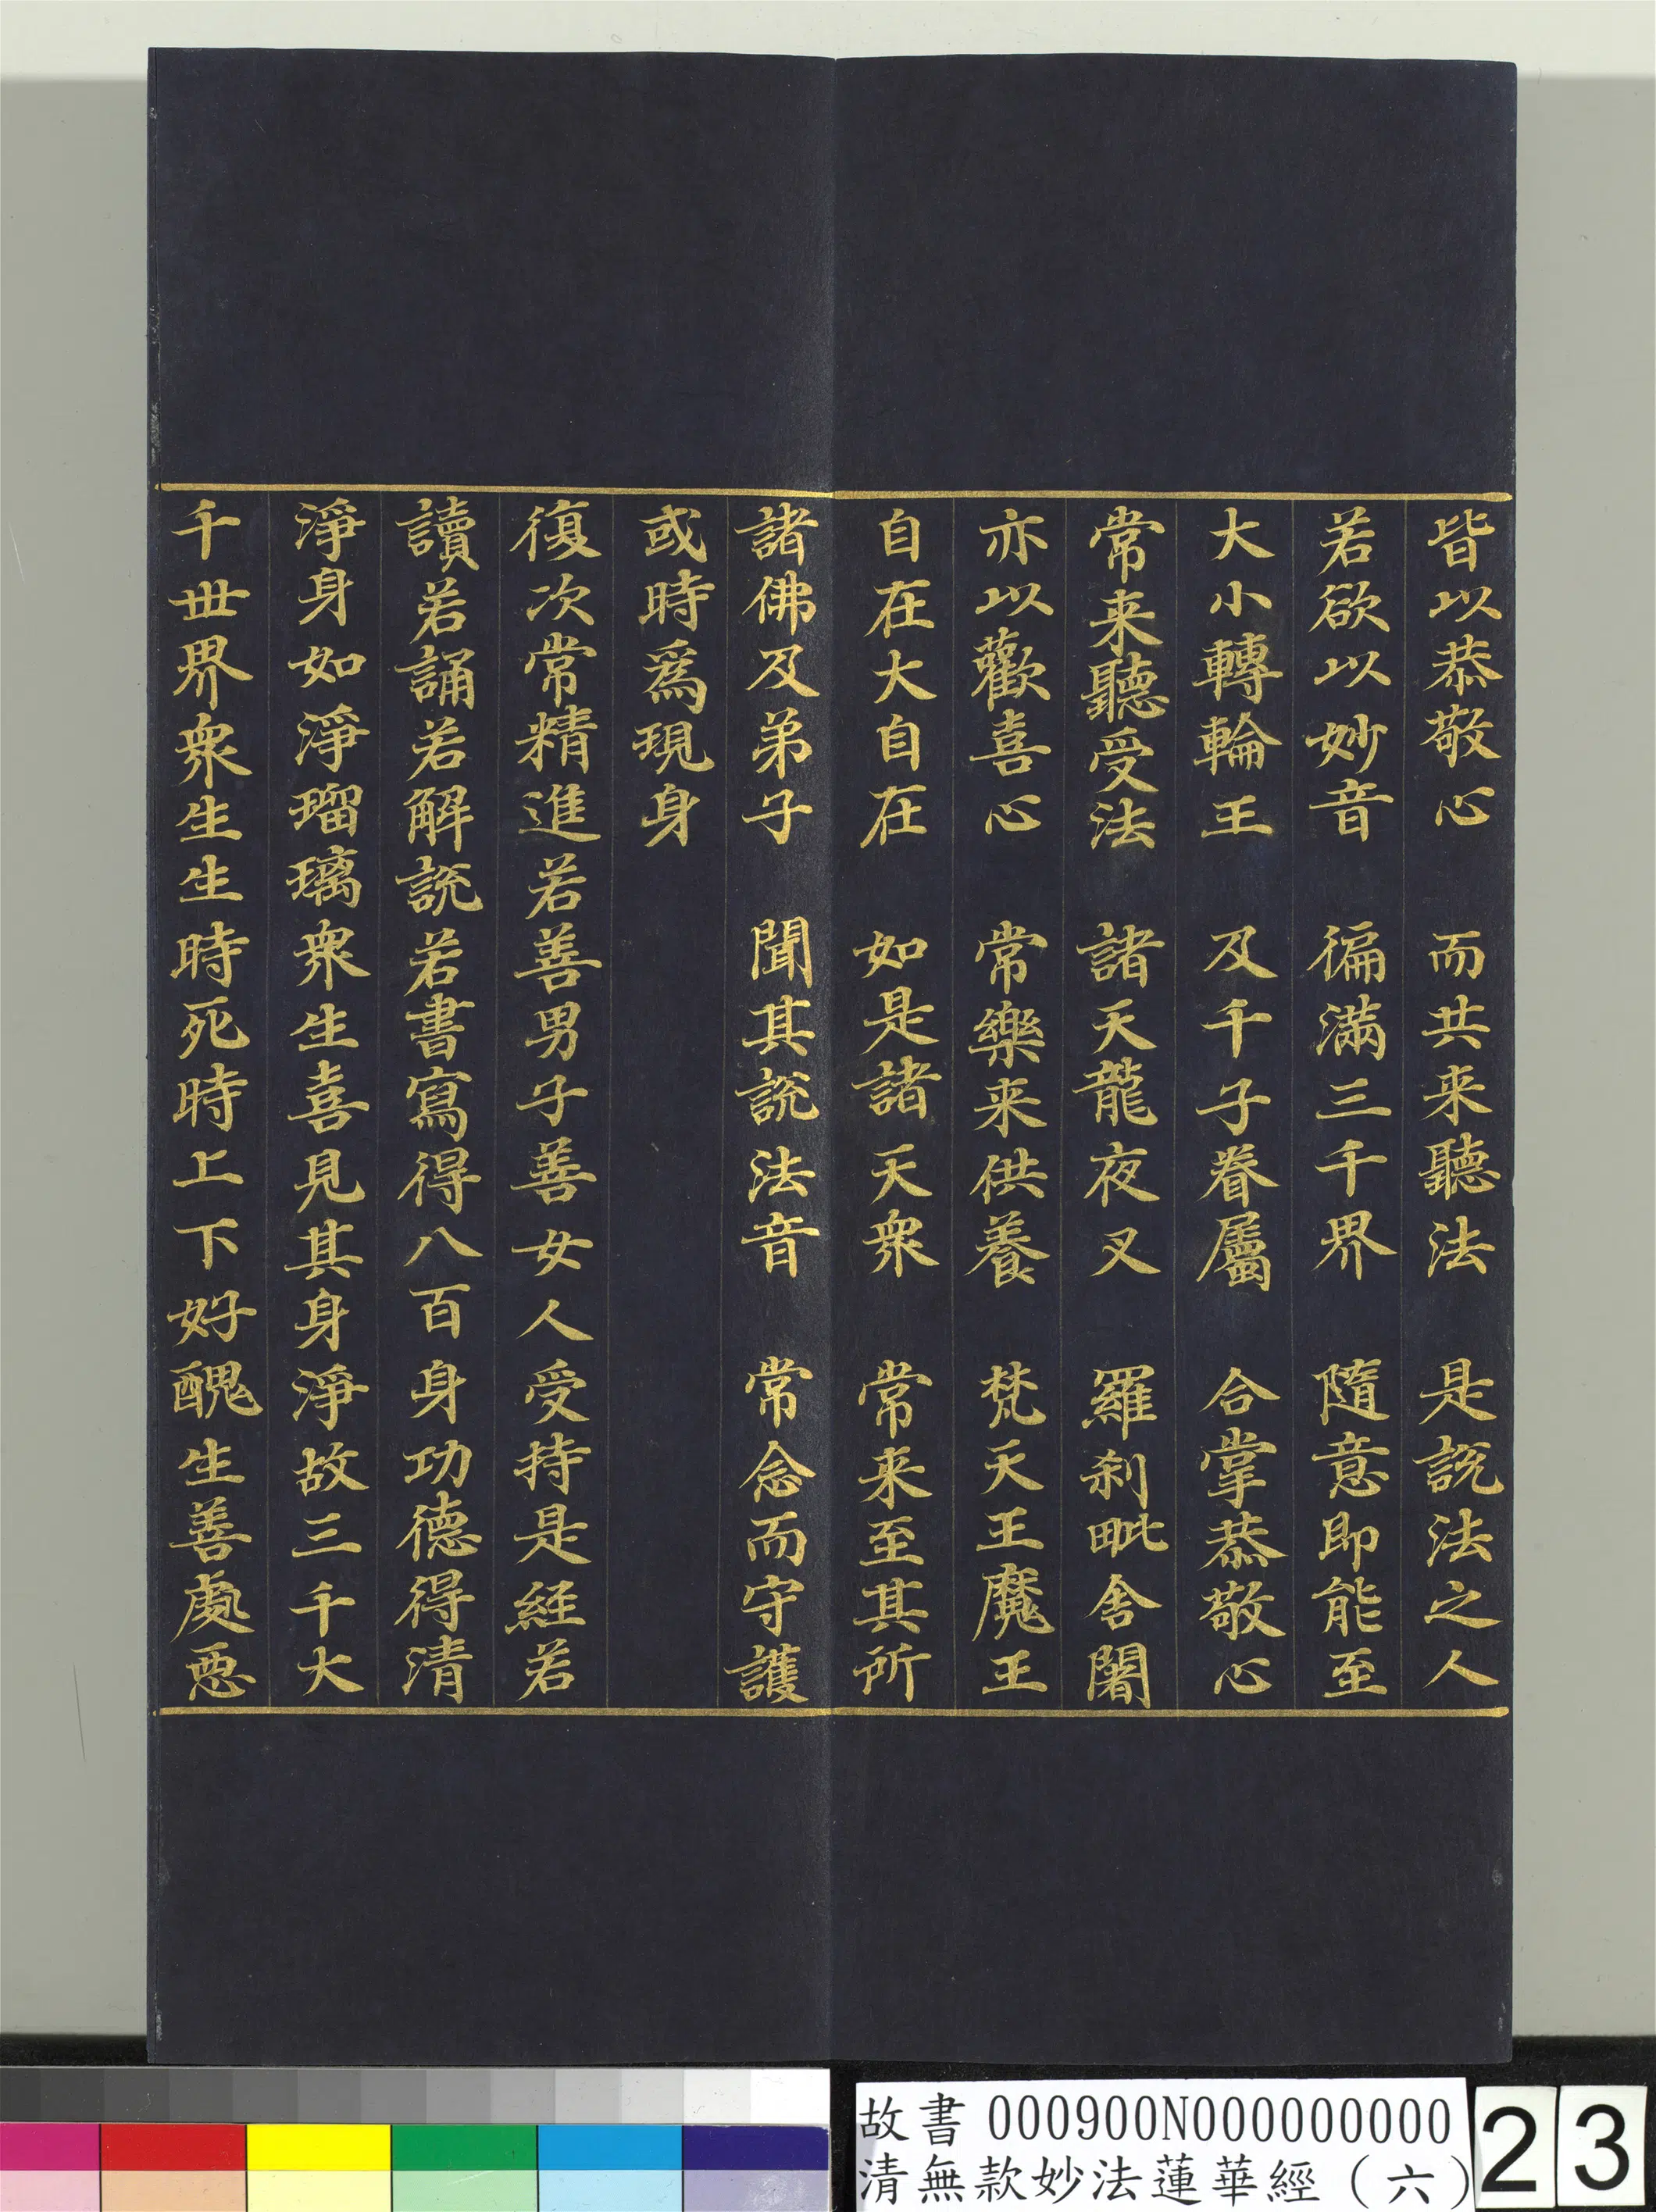 皆以恭敬心　而共来聽法　是說法之人
若欲以妙音　徧滿三千界　隨意即能至
大小轉輪王　及千子眷屬　合掌恭敬心
常来聽受法　諸天龍夜叉　羅剎毗舍闍
亦以歡喜心　常樂来供養　梵天王魔王
自在大自在　如是諸天衆　常来至其所
諸佛及弟子　聞其說法音　常念而守護
或時爲現身
復次常精進若善男子善女人受持是經若
讀若誦若解說若書寫得八百身功德得清
淨身如淨瑠璃衆生喜見其身淨故三千大
千世界衆生生時死時上下好醜生善處惡
故書 000900N000000000
清無款妙法蓮華經（六）
23